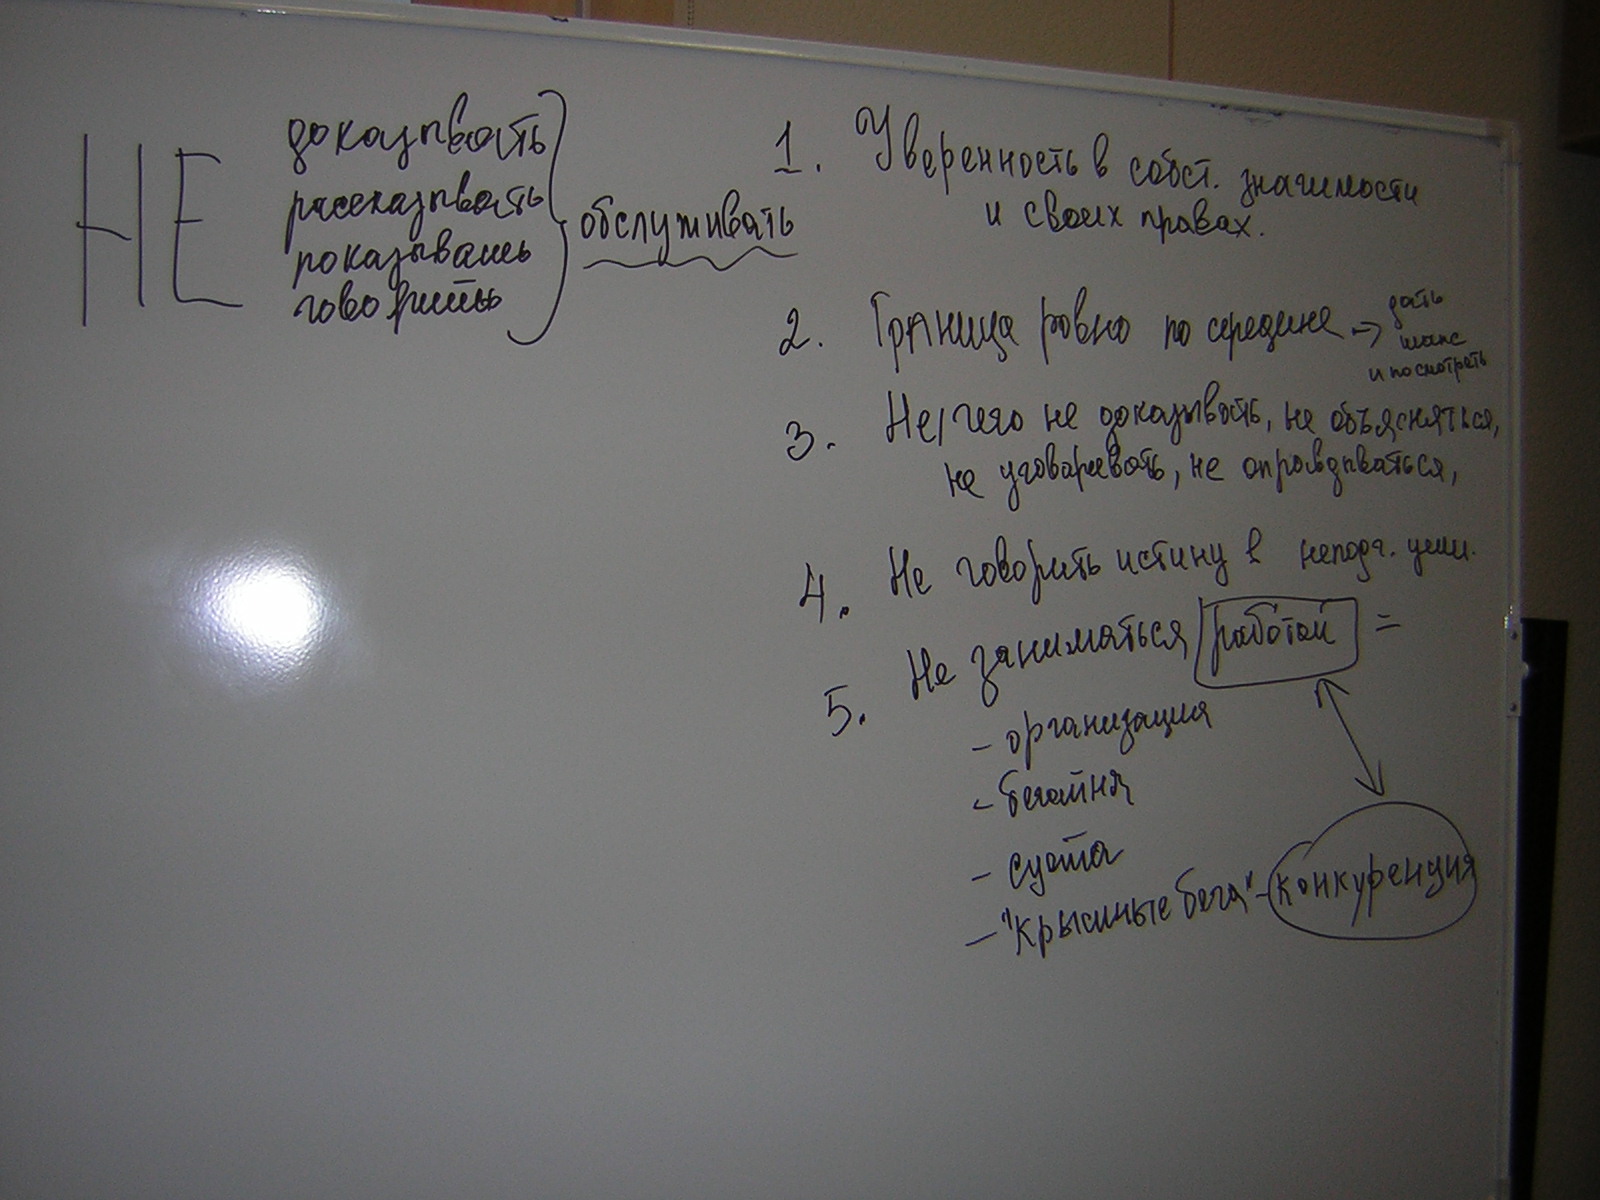 НЕ
доказывать
рассказывать
показывать
говорить
обслуживать
1. Уверенность в собст. значимости
и своих правах.
2. Граница ровно по середине → дать
шанс
и посмотреть
3. Не/чего не доказывать, не объясняться,
не уговаревать, не оправдываться,
4. Не говорить истину в неподг. уши.
5. Не заниматься работой =
- организация
- беготня
- суета
- "Крысиные бега" - конкуренция